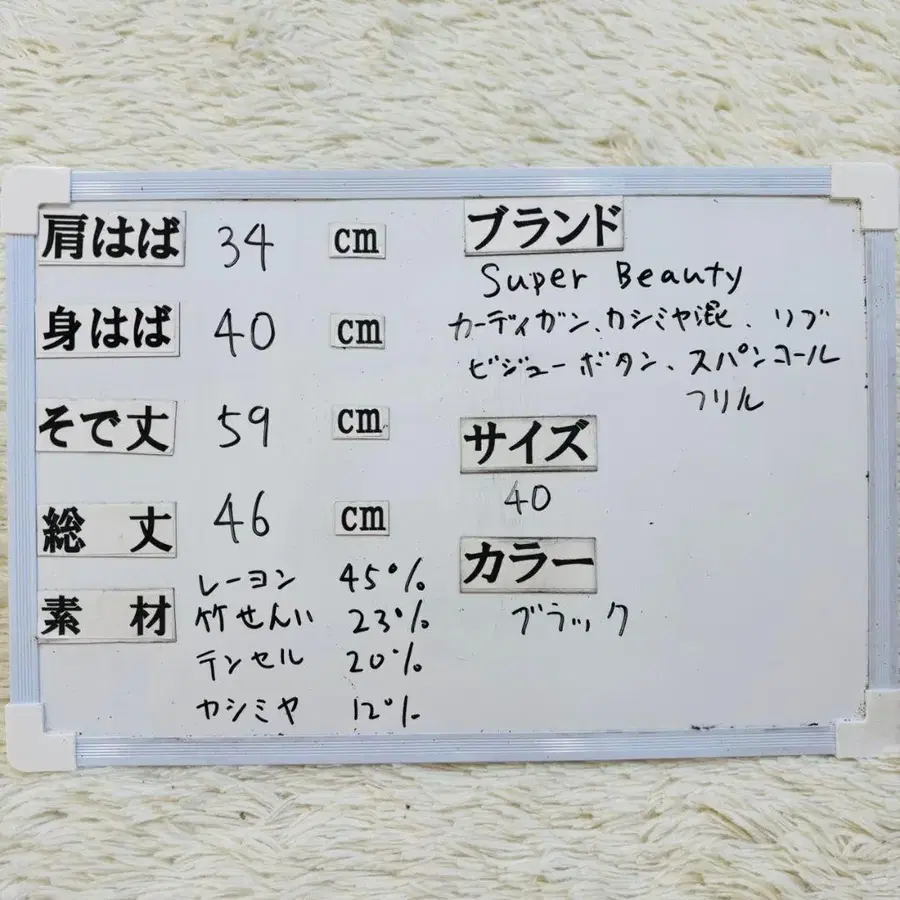 肩はば 34 cm
身はば 40 cm
そで丈 59 cm
総丈 46 cm
素材 レーヨン 45%
竹せんい 23%
テンセル 20%
カシミヤ 12%
ブランド
Super Beauty
カーディガン、カシミヤ混、リブ
ビジューボタン、スパンコール
フリル
サイズ
40
カラー
ブラック